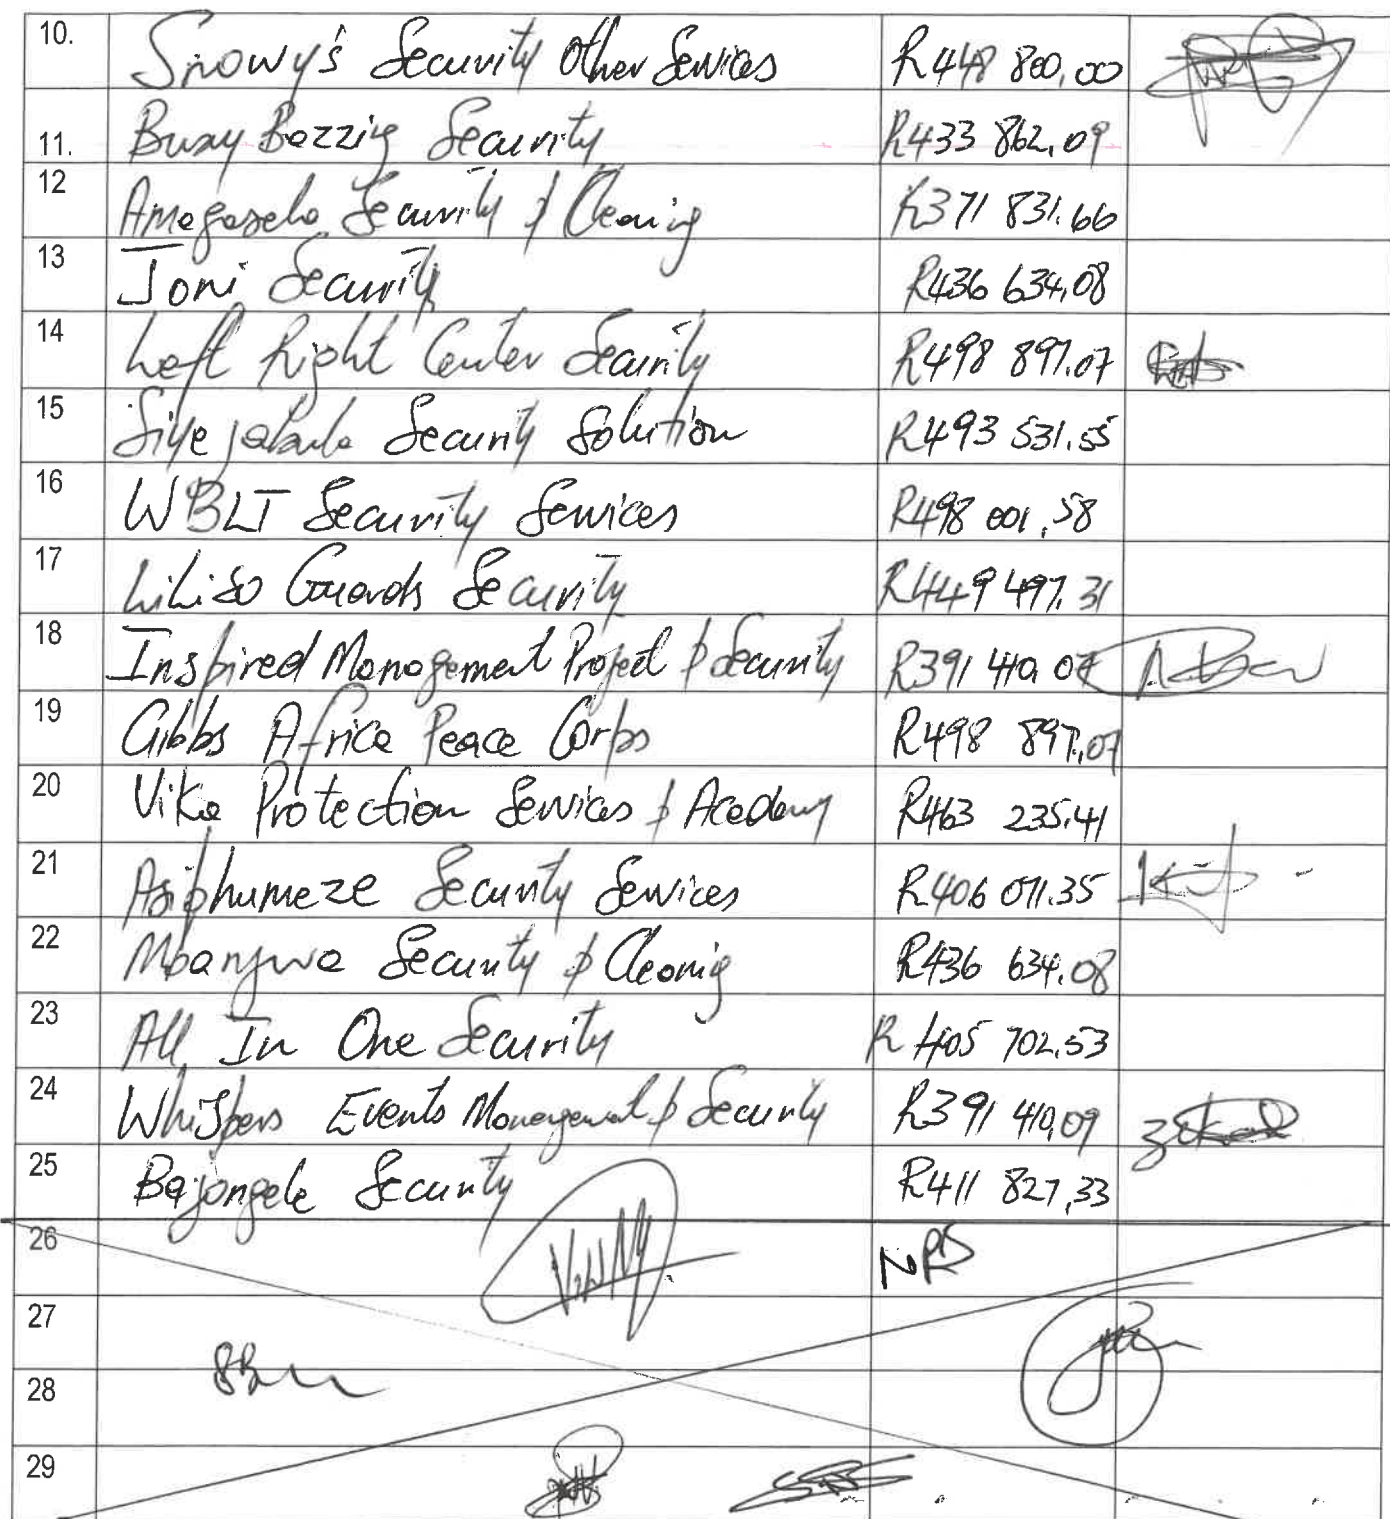 10. Snowy's Security Other Services R448 800,00
11. Busy Bezziy Security R433 862,09
12 Amagasela Security & Cleaning R371 831.66
13 Joni Security R436 634,08
14 Left Right Center Security R498 897.07
15 Siyejabula Security Solution R493 531.55
16 WBLT Security Services R498 001,58
17 LiLiso Guards Security R449 497.31
18 Inspired Management Project & Security R391 410.07
19 Gibbs Africa Peace Corps R498 897,07
20 Vika Protection Services & Academy R463 235.41
21 Asiphumeze Security Services R406 071.35
22 Mbanjwa Security & Cleaning R436 634.08
23 All In One Security R405 702.53
24 Whispers Events Management & Security R391 410,09
25 Bajongele Security R411 827,33
26 NRS
27
28
29